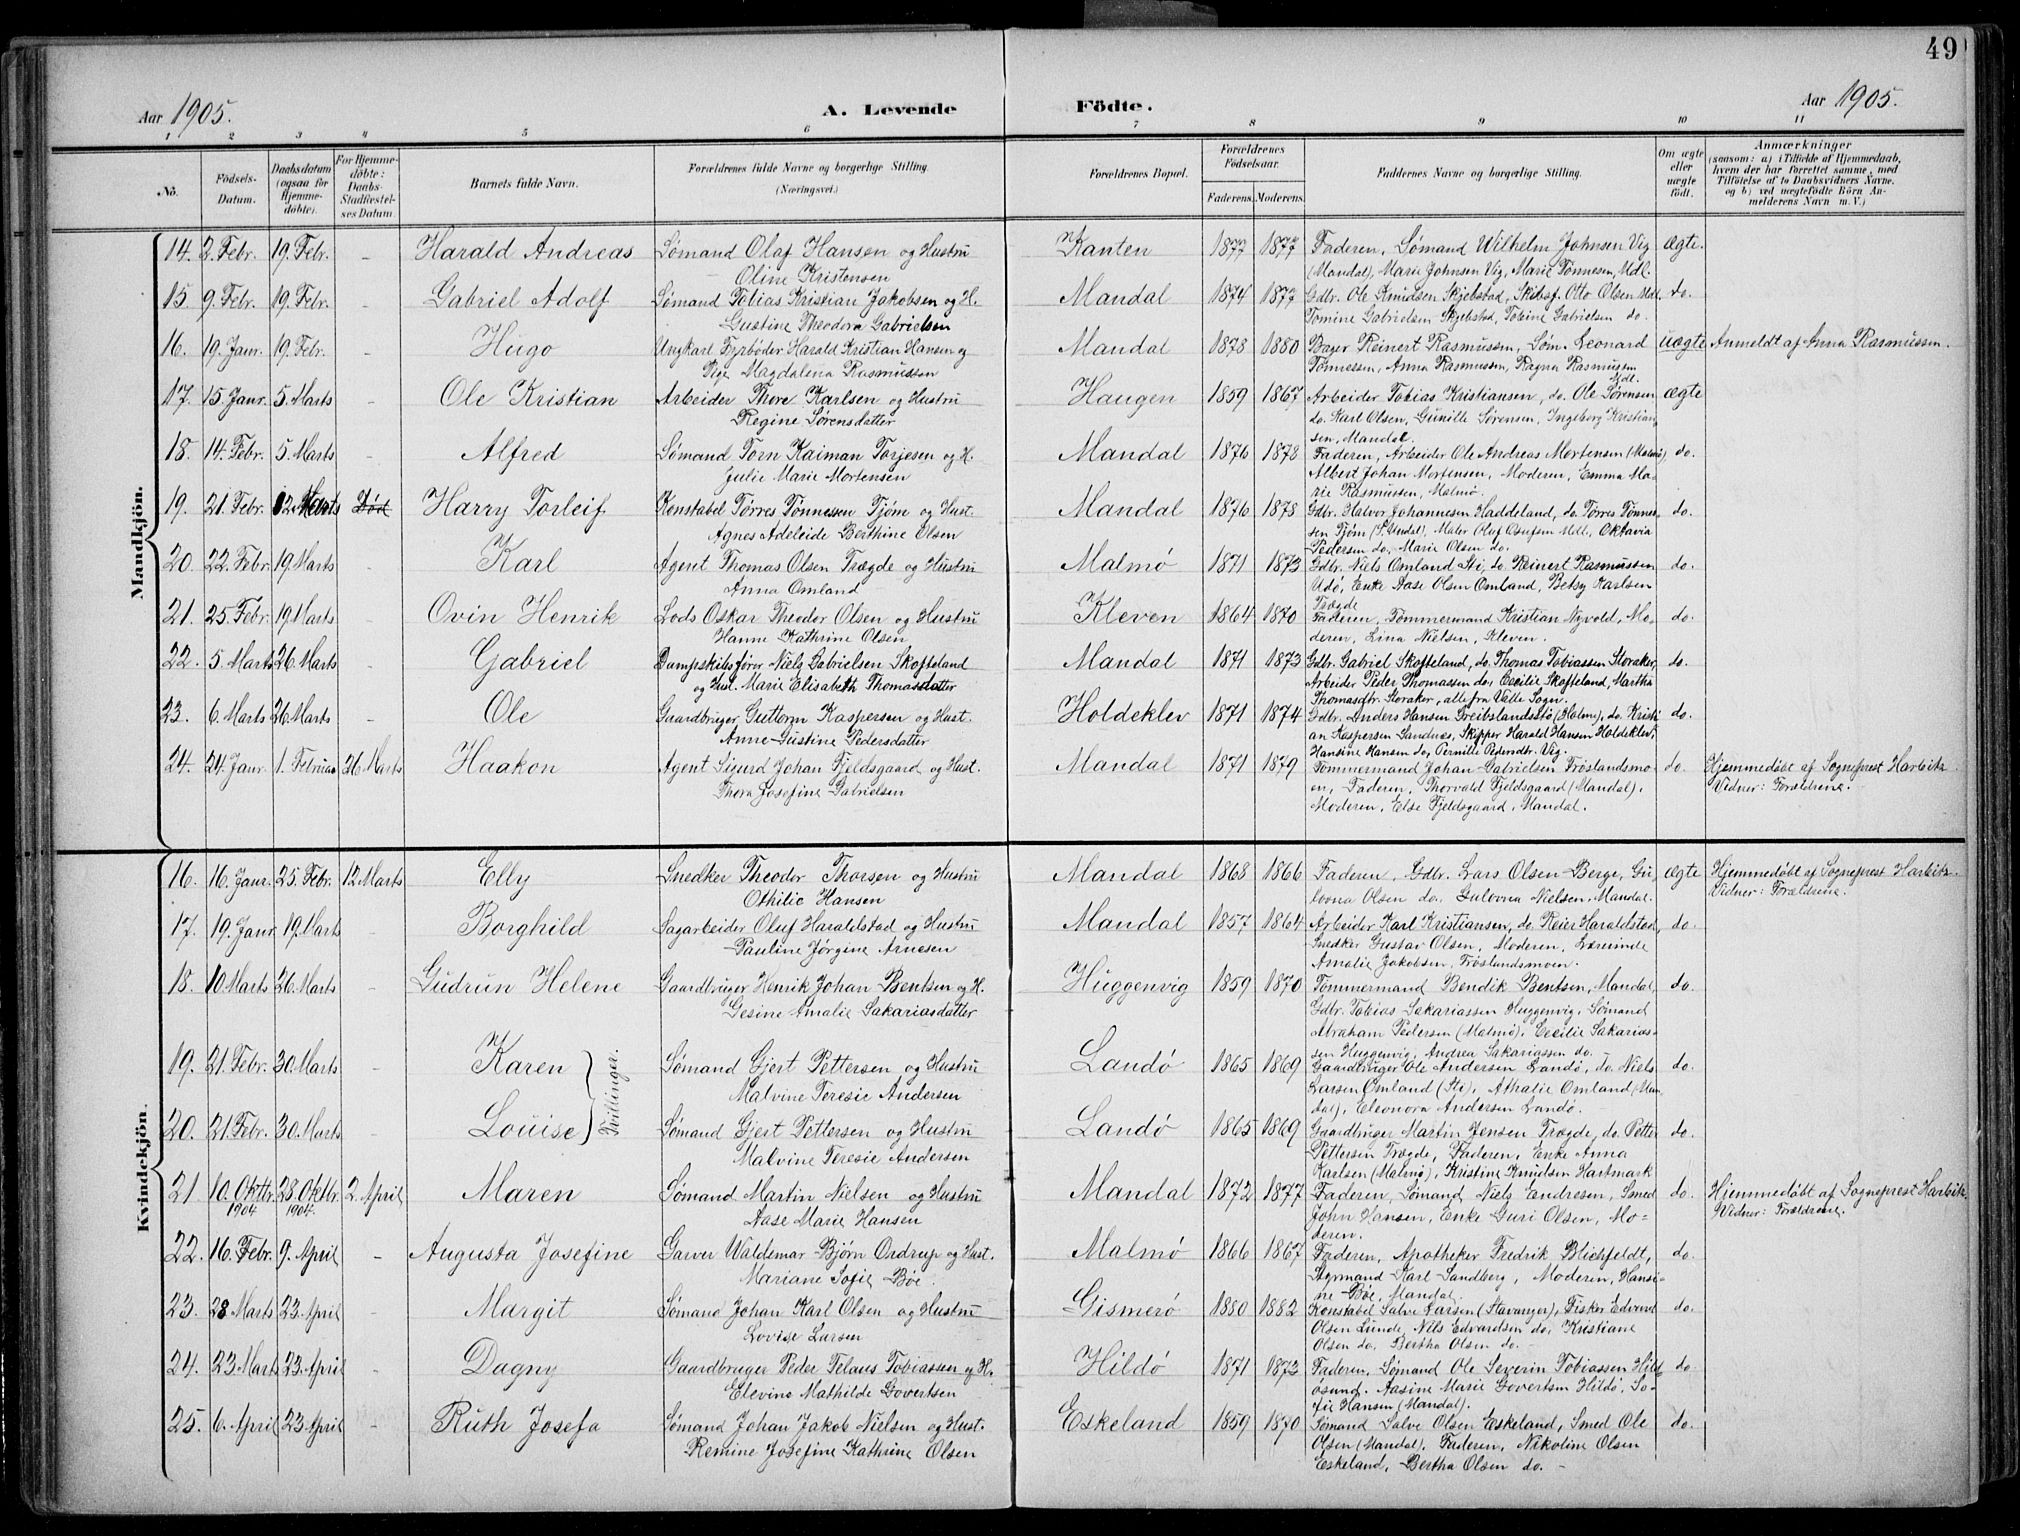 49
Aar 1905.
A. Levende Födte.
Aar 1905.
1 2 3 4 5 6 7 8 9 10 11
No.
Födsels-Datum.
Daabsdatum (ogsaa for Hjemme-döbte).
For Hjemme-döbte: Daabs-Stadfæstel-ses Datum
Barnets fulde Navn.
Forældrenes fulde Navne og borgerlige Stilling (Næringsvei.)
Forældrenes Bopæl.
Forældrenes Födselsaar.
Faderens. Moderens.
Faddernes Navne og borgerlige Stilling.
Om ægte eller uægte födt.
Anmærkninger
(saasom: a) i Tilfælde af Hjemmedaab, hvem der har forrettet samme, med Tilföielse af to Daabsvidners Navne, og b) ved uægtefödte Börn An-melderens Navn m. V.)
Mandkjön.
14. 2 Febr. 19. Febr. - Harald Andreas Sømand Olaf Hansen og Hustru Kanten 1877 1877 Faderen, Sømand Wilhelm Johnsen Vig ægte.
Oline Kristensen (Mandal), Marie Johnsen Vig, Marie Tønnesen, Mdl.
15. 9. Febr. 19. Febr. - Gabriel Adolf Sømand Tobias Kristian Jakobsen og H. Mandal 1874 1877 Gdbr. Ole Knudsen Skjebstad, Skibsf. Otto Olsen Mdl. do.
Gustine Theodora Gabrielsen Tomine Gabrielsen Skjebstad, Tobine Gabrielsen do.
16. 19. Janr. 19. Febr. - Hugo Ungkarl Fyrbøder Harald Kristian Hansen og Mandal 1878 1880 Bager Reinert Rasmussen, Søm. Leonard uægte Anmeldt af Anna Rasmussen.
Pige Magdalena Rasmussen Tønnessen, Anna Rasmussen, Ragna Rasmussen Mdl.
17. 15. Janr. 5. Marts - Ole Kristian Arbeider Thore Karlsen og Hustru Haugen 1859 1867 Arbeider Tobias Kristiansen, do. Ole Sørensen ægte
Regine Sørensdatter do. Karl Olsen, Gunille Sørensen, Ingeborg Kristian-
sen, Mandal.
18. 14. Febr. 5. Marts - Alfred Sømand Torn Kaiman Torjesen og H. Mandal 1876 1878 Faderen, Arbeider Ole Andreas Mortensen (Malmø) do.
Julie Marie Mortensen Albert Johan Mortensen, Moderen, Emma Ma-
rie Rasmussen, Malmø.
19. 21. Febr. 12. Marts Død Harry Torleif Konstabel Tørres Tønnessen Tjøm og Hust. Mandal 1876 1878 Gdbr. Halvor Johannesen Haddeland, do. Tørres Tønnes- do.
Agnes Adeleide Berthine Olsen sen Tjøm (S. Undal), Maler Oluf Osufsen Mdl., Oktavia
Pedersen do, Marie Olsen do.
20. 22. Febr. 19. Marts - Karl Agent Thomas Olsen Trægde og Hustru Malmø 1871 1873 Gdbr. Niels Omland Stø, do. Reinert Rasmussen do.
Anna Omland Udø, Enke Aase Olsen Omland, Betsy Karlsen
Trægde
21. 25. Febr. 19. Marts - Ovin Henrik Lods Oskar Theodor Olsen og Hustru Kleven 1864 1870 Faderen, Tømmermand Kristian Nyvold, Mo- do.
Hanne Kathrine Olsen deren, Lina Nielsen, Kleven.
22. 5. Marts 26. Marts - Gabriel Dampskibsfører Niels Gabrielsen Skofteland Mandal 1871 1873 Gdbr. Gabriel Skofteland, do. Thomas Tobiassen Storaker, do.
og Hust. Marie Elisabeth Thomasdatter Arbeider Peder Thomassen do, Cecilie Skofteland, Martha
Thomasdtr. Storaker, alle fra Valle Sogn.
23. 6. Marts 26. Marts - Ole Gaardbruger Guttorm Kaspersen og Hust. Holdeklev 1871 1874 Gdbr. Anders Hansen Freibslandsstø (Holme), do. Kristi- do.
Anne Gustine Pedersdatter an Kaspersen Sandnæs, Skipper Harald Hansen Holdeklev,
Hansine Hansen do, Pernille Pedersdtr. Vig.
24. 24. Janr. 1. Februar 26. Marts Haakon Agent Sigurd Johan Fjeldsgaard og Hust. Mandal 1871 1879 Tømmermand Johan Gabrielsen Frøslandsmo- do. Hjemmedøbt af Sogneprest Harbitz.
Thora Josefine Gabrielsen en, Faderen, Thorvald Fjeldsgaard (Mandal), Vidner: Forældrene.
Moderen, Else Fjeldsgaard, Mandal.
Kvindekjön.
16. 16. Janr. 25. Febr. 12 Marts Elly Snedker Theodor Thorsen og Hustru Mandal 1868 1866 Faderen, Gdbr. Lars Olsen Berge, Gu- ægte Hjemmedøbt af Sogneprest Harbitz.
Othilie Hansen lovna Olsen do, Gulovna Nielsen, Mandal. Vidner: Forældrene.
17. 19. Janr. 19. Marts - Borghild Sagarbeider Oluf Haraldstad og Hustru Mandal 1857 1864 Arbeider Karl Kristiansen, do. Reier Haraldstad, do.
Pauline Jørgine Arnesen Snedker Gustav Olsen, Moderen, Lærerinde
Amalie Jakobsen, Frøslandsmoen.
18. 10 Marts 26. Marts - Gudrun Helene Gaardbruger Henrik Johan Bentsen og H. Huggenvig 1859 1870 Tømmermand Bendik Bentsen, Mandal, do.
Gesine Amalie Sakariasdatter Gdbr. Tobias Sakariassen Huggenvig, Sømand
Abraham Pedersen (Malmø), Cecilie Sakarias-
sen Huggenvig, Andrea Sakariassen do.
19. 21. Febr. 30. Marts - Karen Tvillinger. Sømand Gjert Pettersen og Hustru Landø 1865 1869 Gaardbruger Ole Andersen Landø, do. Niels do.
Malvine Teresie Andersen Larsen Omland (Stø), Athalie Omland (Man-
dal), Eleonora Andersen Landø.
20. 21. Febr. 30. Marts - Louise Sømand Gjert Pettersen og Hustru Landø 1865 1869 Gaardbruger Martin Jensen Trægde, do. Petter do.
Malvine Teresie Andersen Pettersen Trægde, Faderen, Enke Anna
Karlsen (Malmø), Kristine Knudsen Hartmark
21. 10. Oktbr. 1904 28. Oktbr. 1904. 2. April Maren Sømand Martin Nielsen og Hustru Mandal 1872 1877 Faderen, Sømand Niels Endresen, Smed do. Hjemmedøbt af Sogneprest Harbitz
Aase Marie Hansen John Hansen, Enke Guri Olsen, Mo- Vidner: Forældrene.
deren.
22. 16. Febr. 9. April - Augusta Josefine Garver Waldemar Bjørn Ordrup og Hust. Malmø 1866 1867 Faderen, Apotheker Fredrik Blichfeldt, do.
Mariane Sofie Bøe. Styrmand Karl Sandberg, Moderen, Hansi-
ne Bøe, Mandal.
23. 28 Marts 23. April - Margit Sømand Johan Karl Olsen og Hustru Gismerø 1880 1882 Konstabel Salve Larsen (Stavanger), Fisker Edvard do.
Lovise Larsen Olsen Lunde, Nils Edvardsen do, Kristiane
Olsen do, Bertha Olsen do.
24. 23. Marts 23. April - Dagny Gaardbruger Peder Telaus Tobiassen og H. Hildø 1871 1873 Faderen, Sømand Ole Severin Tobiassen Hild- do.
Elevine Mathilde Govertsen øsund. Aasine Marie Govertsen Hildø, So-
fie Hansen (Mandal).
25. 6. April 23 April - Ruth Josefa Sømand Johan Jakob Nielsen og Hust. Eskeland 1859 1870 Sømand Salve Olsen Eskeland, Smed Ole do.
Remine Josefine Kathrine Olsen Olsen (Mandal), Faderen, Nikoline Olsen
Eskeland, Bertha Olsen do. -